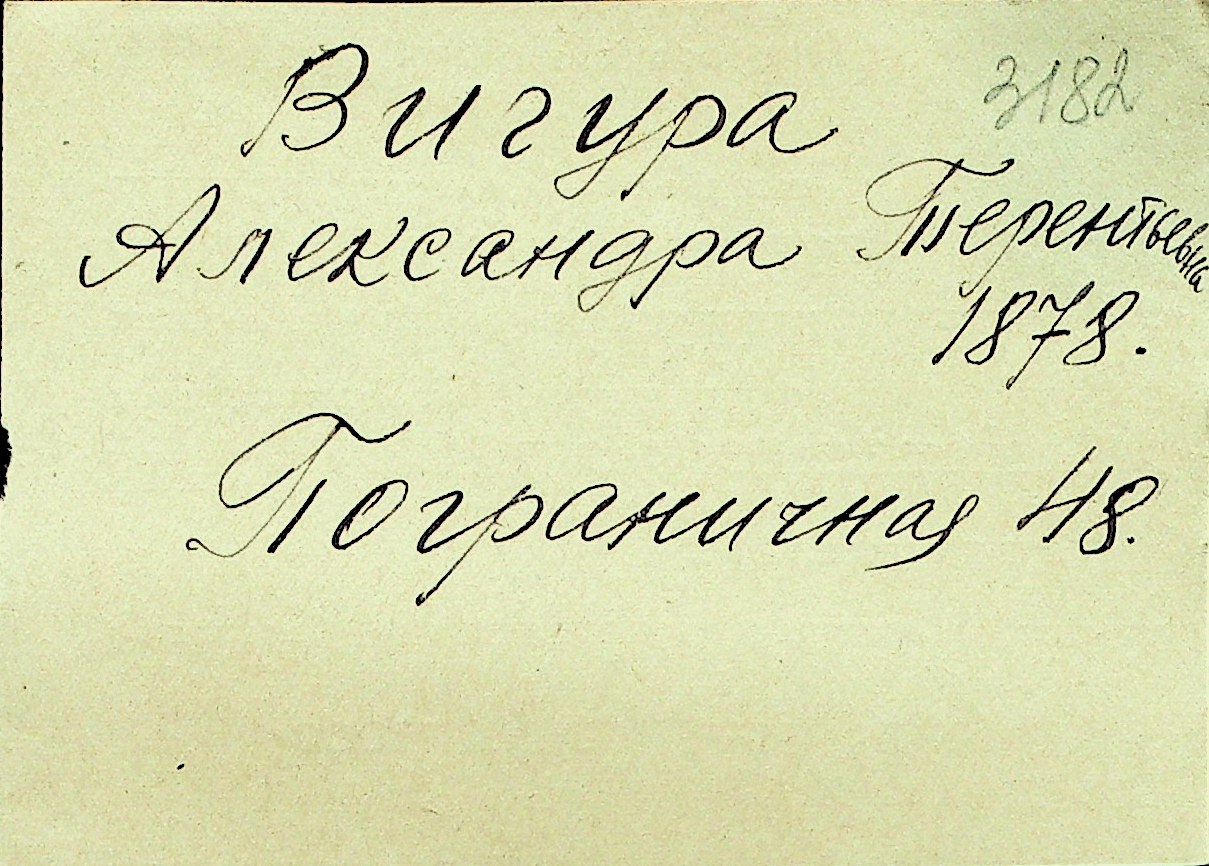 3182
Вигура
Александра Терентьевна
1878.
Пограничная 48.